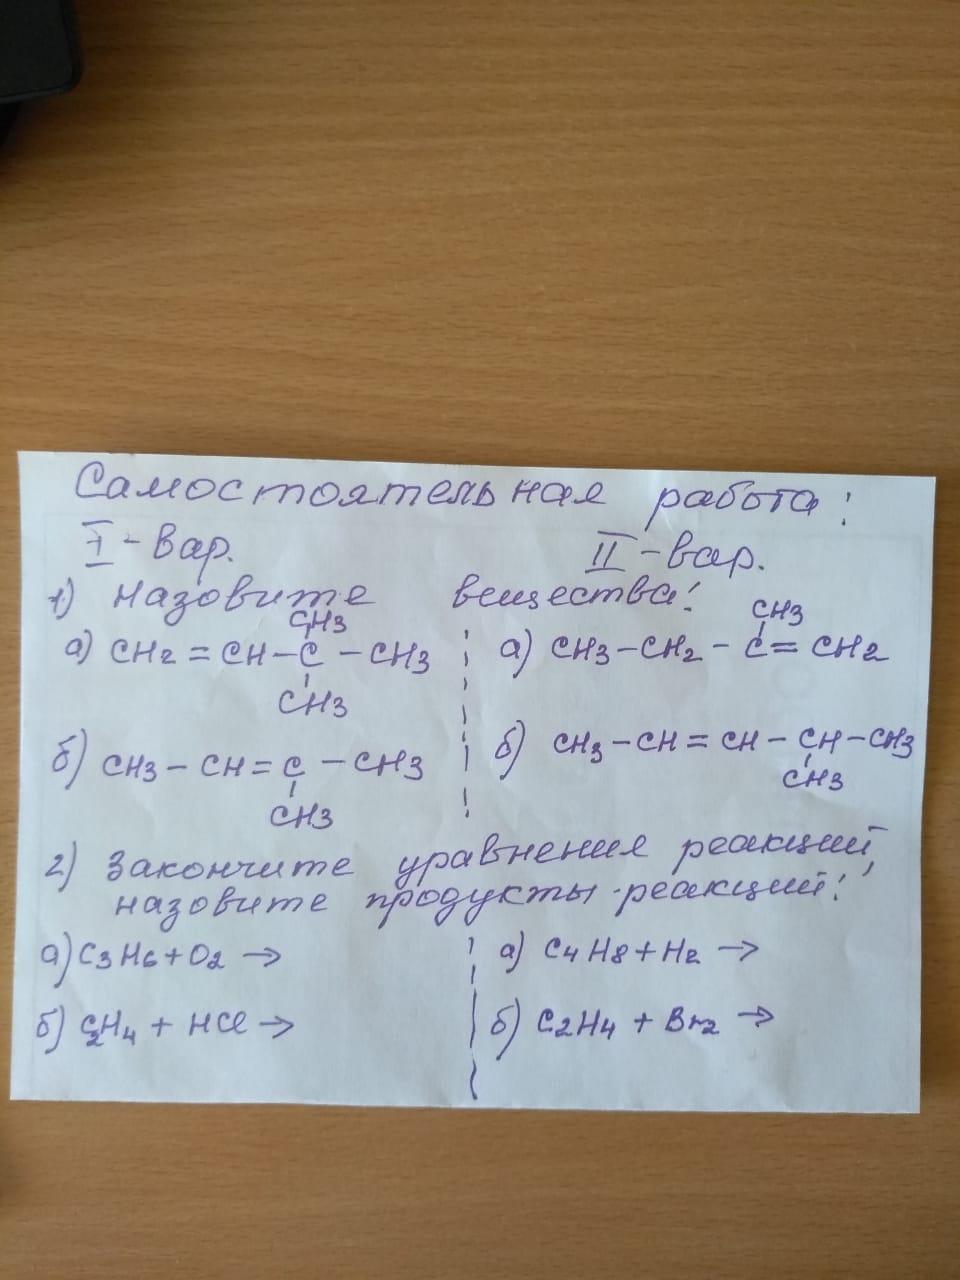 Самостоятельная работа:
I - вар. II - вар.
1) назовите вещества:
CH3 CH3
а) CH2 = CH – C – CH3 а) CH3 – CH2 – C = CH2
CH3
б) CH3 – CH = C – CH3 б) CH3 – CH = CH – CH – CH3
CH3 CH3
2) Закончите уравнения реакций,
назовите продукты реакций:
а) C3H6 + O2 → а) C4H8 + H2 →
б) C2H4 + HCl → б) C2H4 + Br2 →